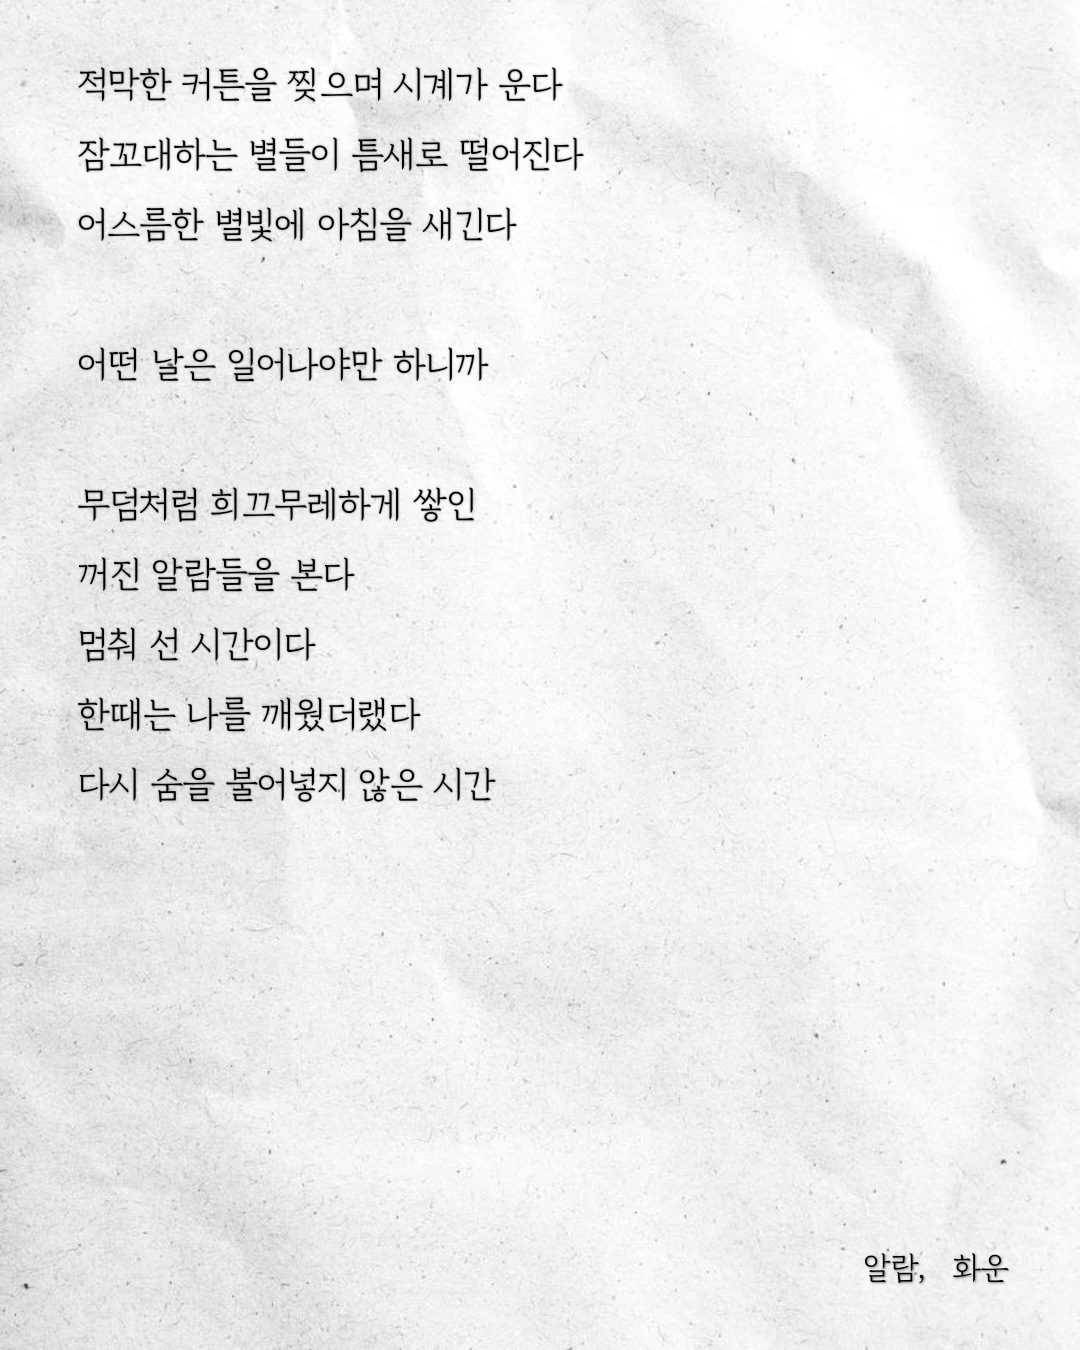 적막한 커튼을 찢으며 시계가 운다
잠꼬대하는 별들이 틈새로 떨어진다
어스름한 별빛에 아침을 새긴다
어떤 날은 일어나야만 하니까
무덤처럼 희끄무레하게 쌓인
꺼진 알람들을 본다
멈춰 선 시간이다
한때는 나를 깨웠더랬다
다시 숨을 불어넣지 않은 시간
알람, 화운